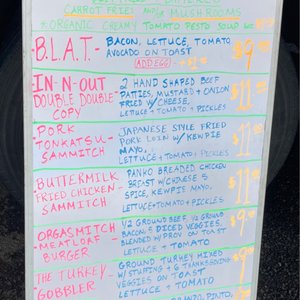 CARROT FRIED AND/OR MUSHROOMS
ORGANIC CREAMY TOMATO PESTO SOUP
B.L.A.T. - BACON, LETTUCE, TOMATO
AVOCADO ON TOAST
ADD EGG
IN-N-OUT
DOUBLE DOUBLE
COPY
2 HAND SHAPED BEEF
PATTIES, MUSTARD + ONION
FRIED W/CHEESE,
LETTUCE + TOMATO + PICKLES
PORK
TONKATSU-
SAMMITCH
JAPANESE STYLE FRIED
PORK LOIN W/ KEWPIE
MAYO,
LETTUCE + TOMATO + PICKLES
BUTTERMILK
FRIED CHICKEN-
SAMMITCH
PANKO BREADED CHICKEN
BREAST W/CHINESE 5
SPICE, KEWPIE MAYO,
LETTUCE+TOMATO+PICKLES
ORGASMITCH-
MEATLOAF
BURGER
1/2 GROUND BEEF, 1/2 GROUND
BACON & DICED VEGGIES,
BLENDED W/PROV ON TOAST
LETTUCE + TOMATO
THE TURKEY
GOBBLER
GROUND TURKEY MIXED
W/STUFFING + 6 THANKSGIVING
VEGGIES ON TOAST
LETTUCE + TOMATO